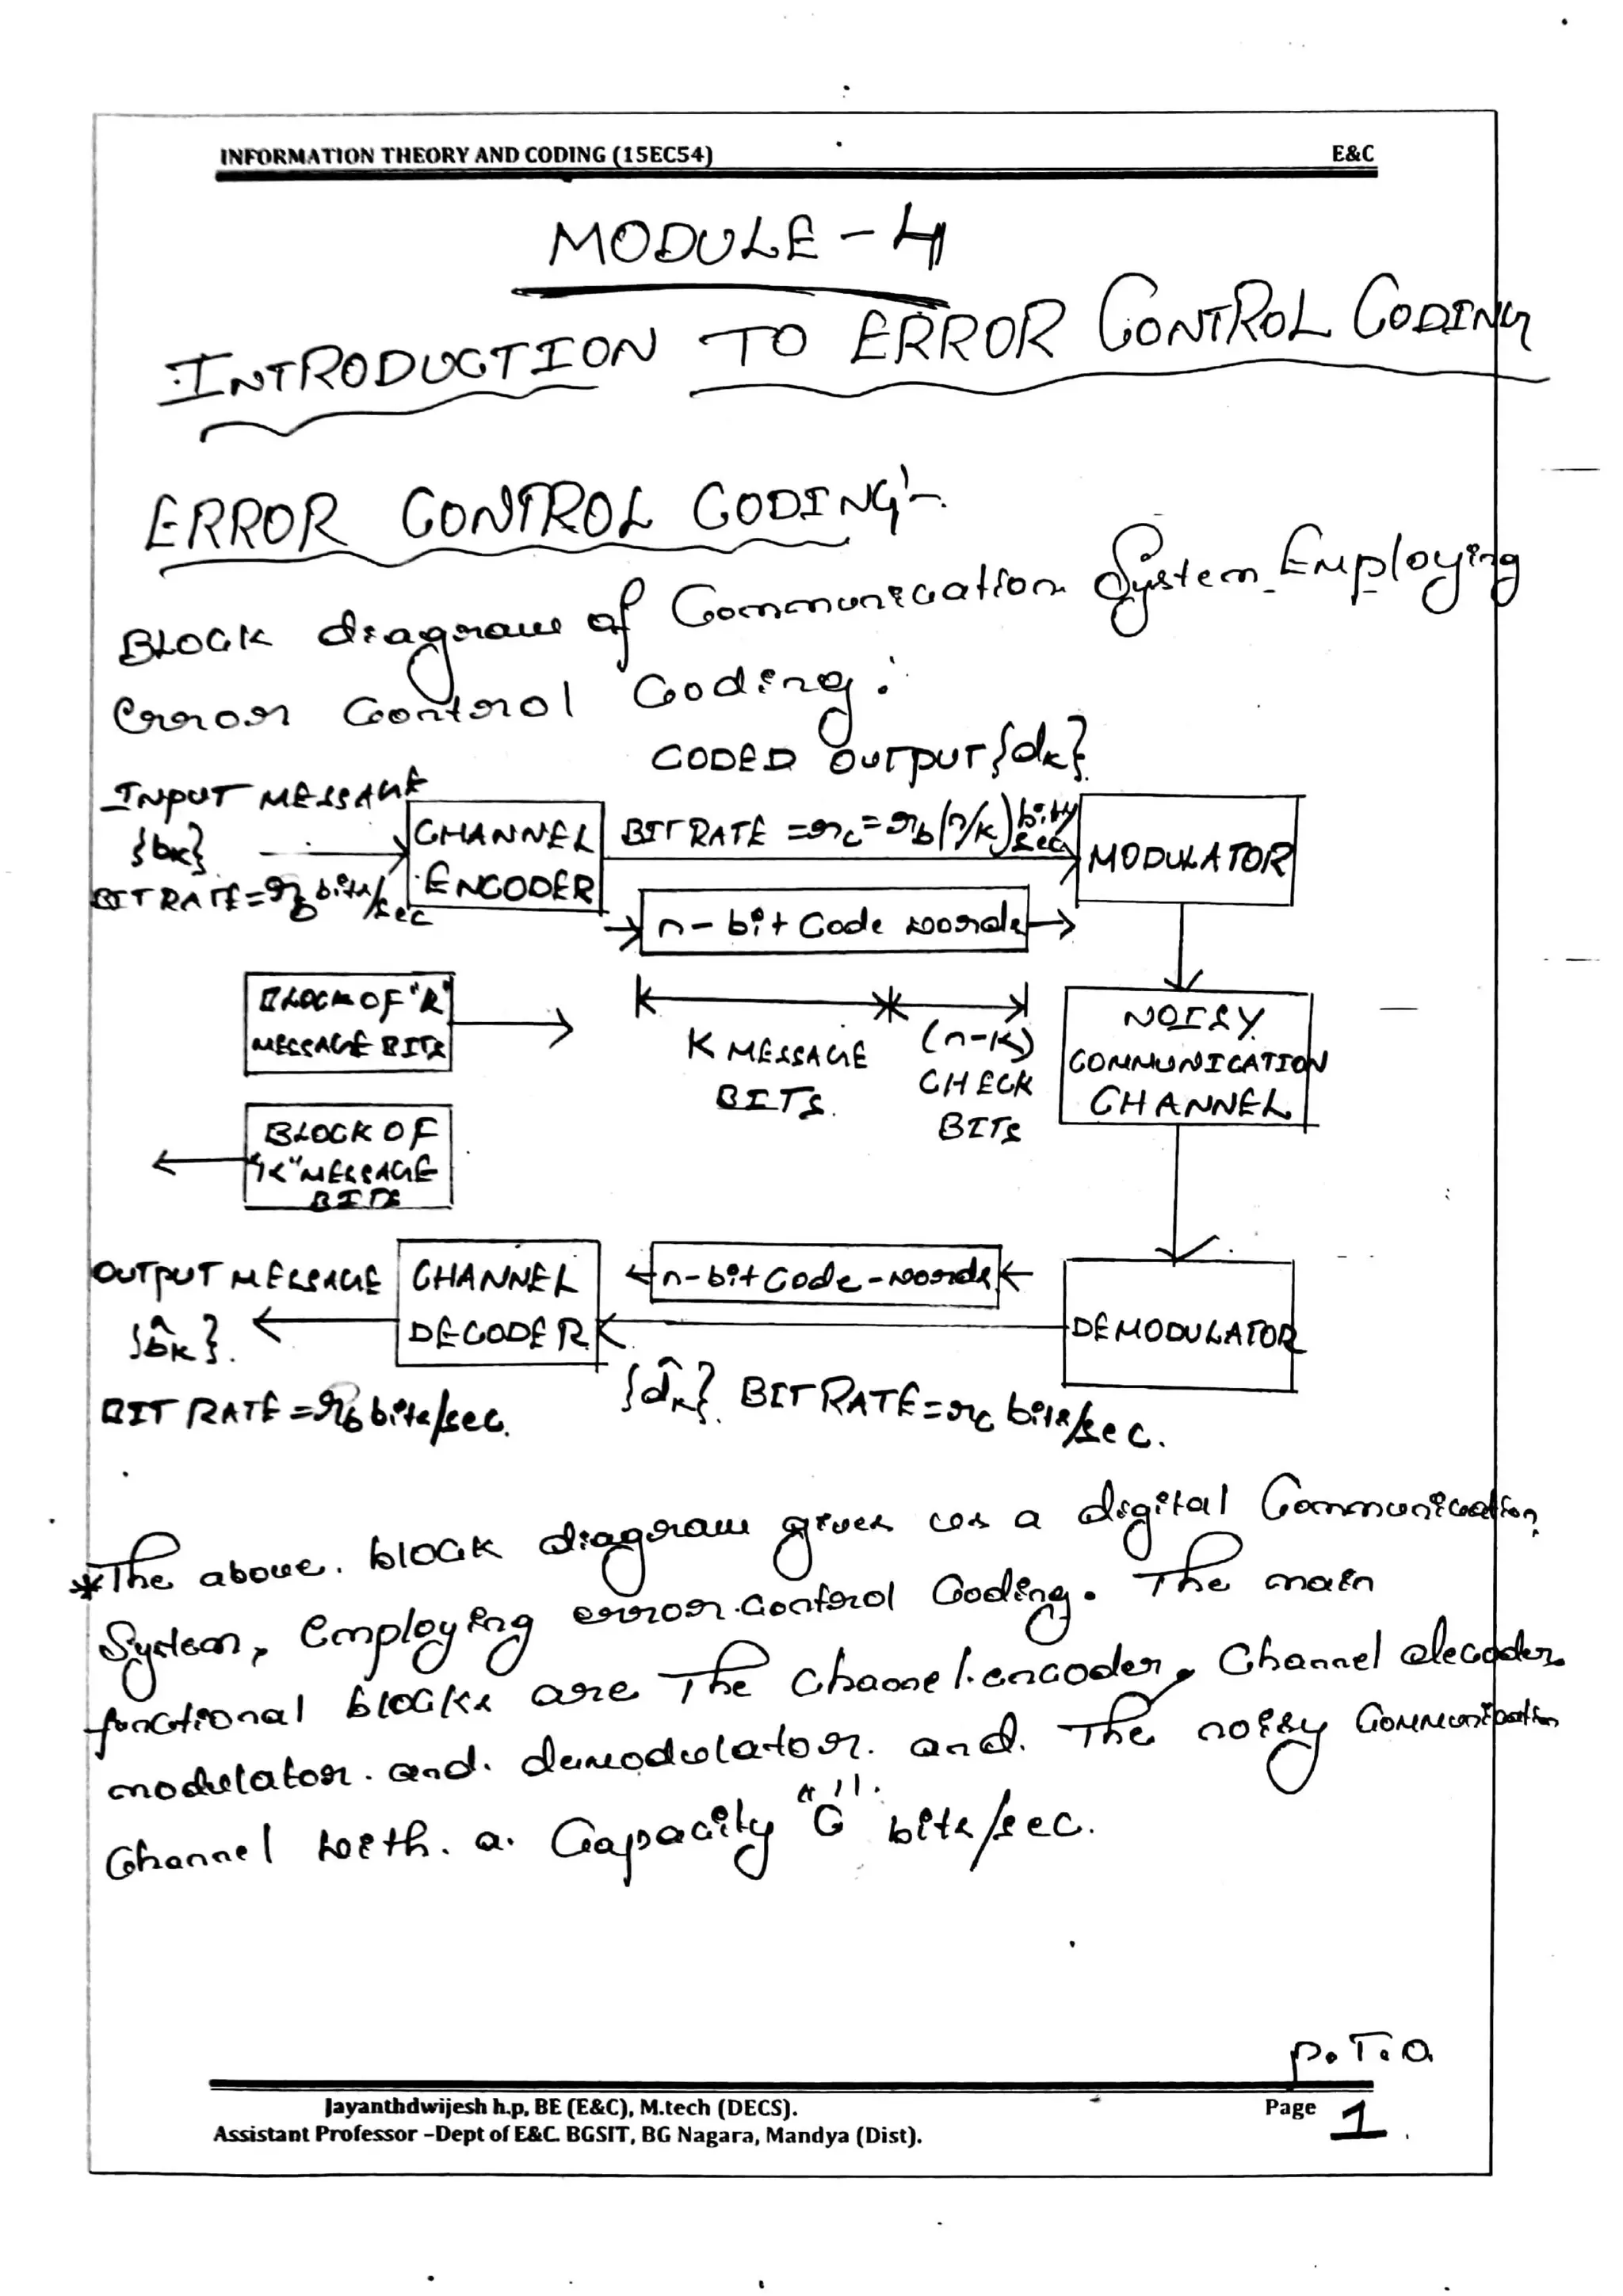 INFORMATION THEORY AND CODING (15EC54) E&C
MODULE - 4
INTRODUCTION TO ERROR CONTROL CODING
ERROR CONTROL CODING:-
BLOCK diagram of Communication System Employing
Error Control Coding:
CODED OUTPUT {dk}
INPUT MESSAGE
{bk}
BIT RATE = rb bits/sec
CHANNEL
ENCODER
BIT RATE = rc = rb (n/k) bits/sec
MODULATOR
n - bit Code words
BLOCK OF "K"
MESSAGE BITS
K MESSAGE
BITS.
(n-k)
CHECK
BITS
NOISY
COMMUNICATION
CHANNEL
BLOCK OF
"K" MESSAGE
BITS
OUTPUT MESSAGE
{b̂k}.
BIT RATE = rb bits/sec.
CHANNEL
DECODER
n-bit Code-words
DEMODULATOR
{d̂k} BIT RATE = rc bits/sec.
*The above. block diagram gives us a digital Communication
System, Employing error.Control Coding. The main
functional blocks are The channel.encoder, Channel decoder
modulator. and. demodulator. and. The noisy Communication
Channel with. a. Capacity "C" bits/sec.
P.T.O
Jayanthdwijesh h.p, BE (E&C), M.tech (DECS). Page 1
Assistant Professor –Dept of E&C. BGSIT, BG Nagara, Mandya (Dist).